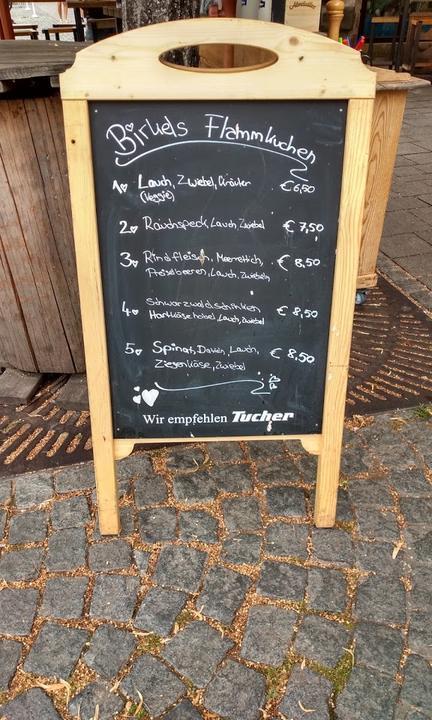 Birkels Flammkuchen
1. Lauch, Zwiebel, Kräuter € 6,50
(Veggie)
2. Rauchspeck, Lauch, Zwiebel € 7,50
3. Rindfleisch, Meerrettich, € 8,50
Preiselbeeren, Lauch, Zwiebeln
4. Schwarzwaldschinken € 8,50
Hartkäsehobel, Lauch, Zwiebel
5. Spinat, Datteln, Lauch, € 8,50
Ziegenkäse, Zwiebel
Wir empfehlen Tucher